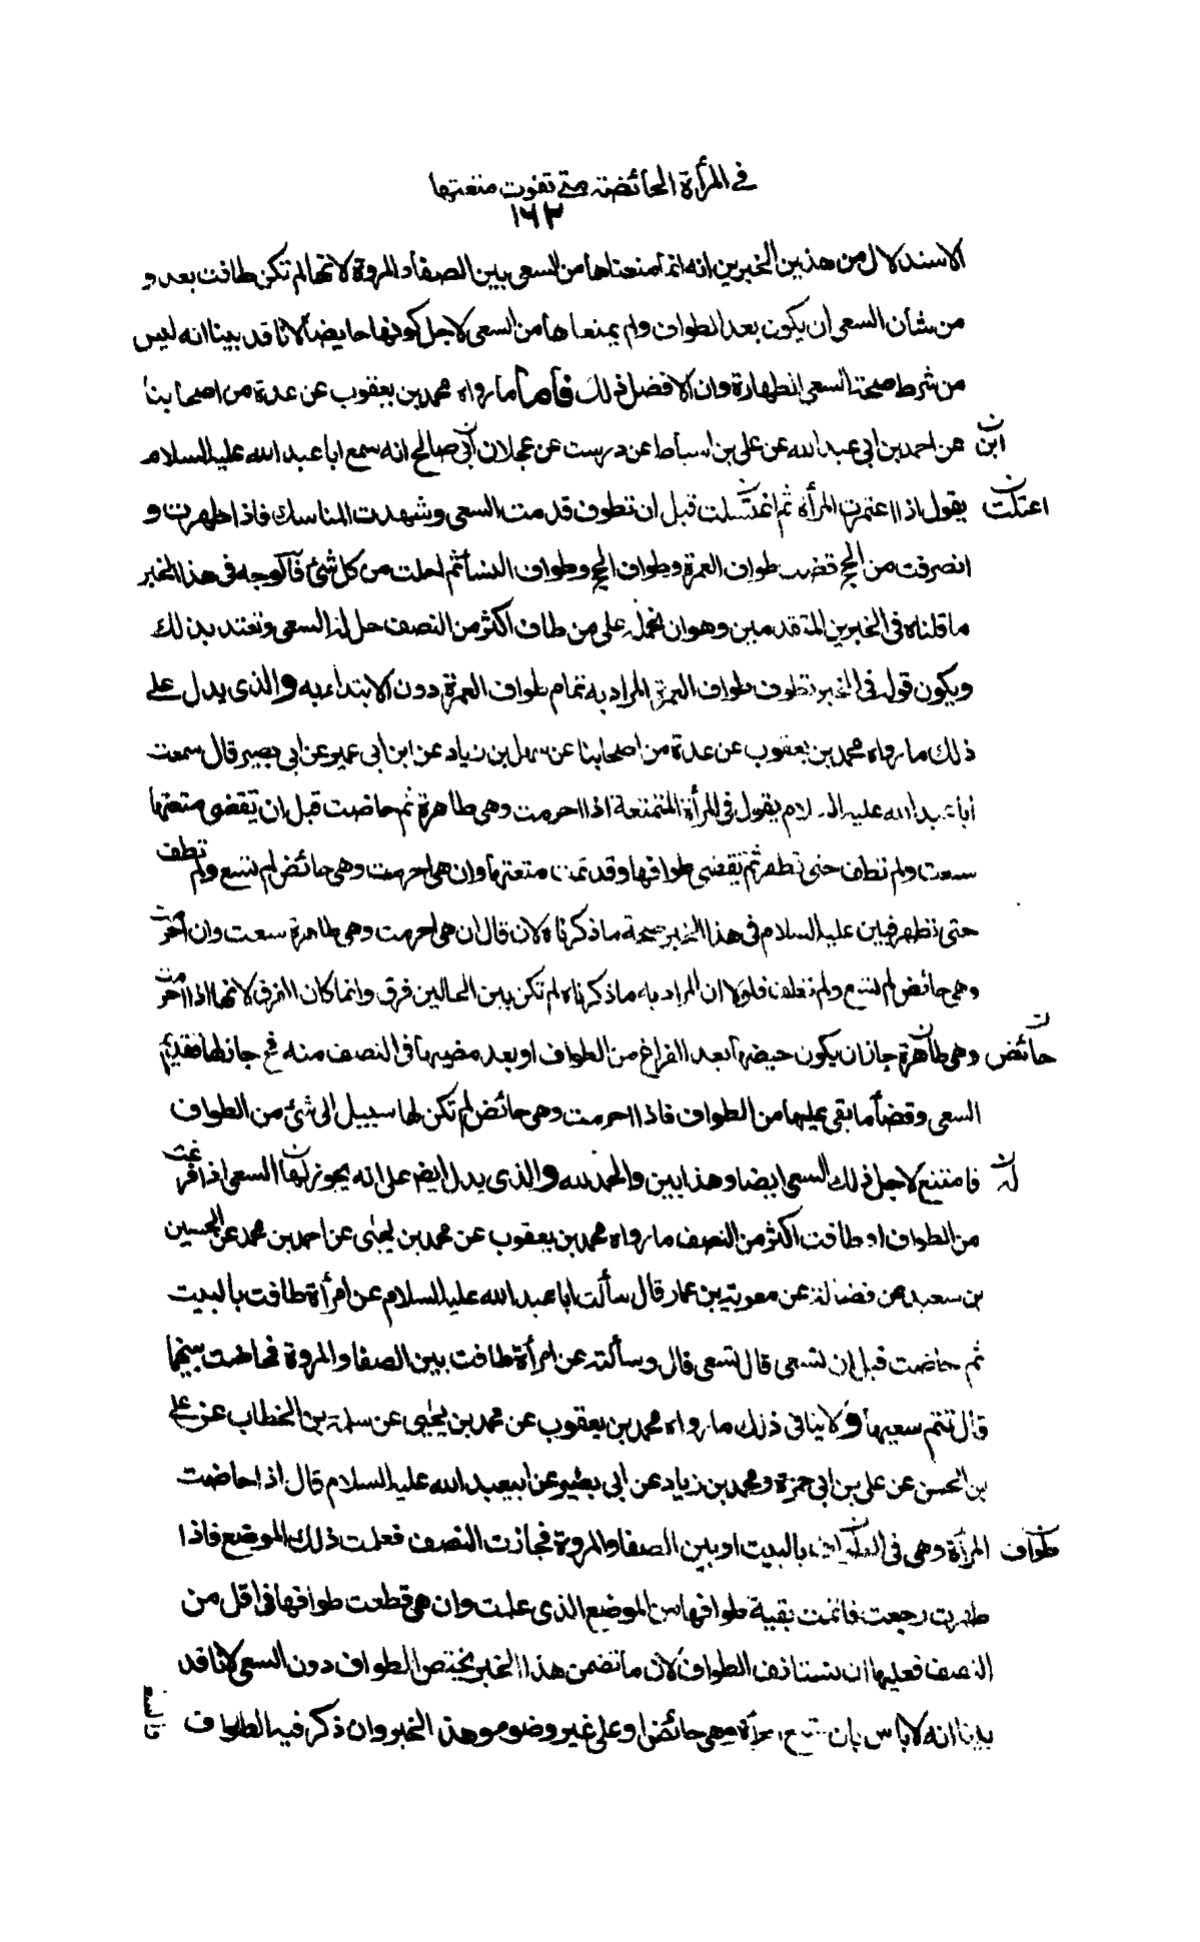 في المرأة الحائضة متى تفوت متعتها
١٦٣
الاستدلال من هذين الخبرين انه انما منعناها من السعي بين الصفا والمروة لانها لم تكن طافت بعد و
من شأن السعي ان يكون بعد الطواف ولم يمنعاها من السعي لاجل كونها حايضا لانا قد بينا انه ليس
من شرط صحة السعي الطهارة وان الافضل ذلك فأما ما رواه محمد بن يعقوب عن عدة من اصحابنا
عن احمد بن ابي عبد الله عن علي بن اسباط عن درست عن عجلان ابي صالح انه سمع ابا عبد الله عليه السلام
ابن
يقول اذا اعتمرت المرأة ثم اغتسلت قبل ان تطوف قدمت السعي وشهدت المناسك فاذا طهرت و
اعتلت
انصرفت من الحج قضت طواف العمرة وطواف الحج وطواف النساء ثم احلت من كل شئ فالوجه في هذا الخبر
ما قلناه في الخبرين المتقدمين وهو ان نحمله على من طاف اكثر من النصف حل له السعي وتعتد بذلك
ويكون قوله في الخبر تطوف طواف العمرة المراد به تمام طواف العمرة دون الابتداء به والذي يدل على
ذلك ما رواه محمد بن يعقوب عن عدة من اصحابنا عن سهل بن زياد عن ابن ابي عمير عن ابي بصير قال سمعت
ابا عبد الله عليه السلام يقول في المرأة المتمتعة اذا احرمت وهي طاهرة ثم حاضت قبل ان تقضي متعتها
سعت ولم تطف حتى تطهر ثم تقضي طوافها وقد تمت متعتها وان هي احرمت وهي حائض لم تسع ولم تطف
حتى تطهر فبين عليه السلام في هذا الخبر صحة ما ذكرناه لان قال ان هي احرمت وهي طاهرة سعت وان احرمت
وهي حائض لم تسع ولم تطف فلولا ان المراد به ما ذكرناه لم تكن بين الحالين فرق وانما كان الفرق لانها اذا احرمت
وهي طاهرة جاز ان يكون حيضها بعد الفراغ من الطواف او بعد مضيها في النصف منه فح جاز لها تقديم
حائض
السعي وقضاء ما بقي عليها من الطواف فاذا احرمت وهي حائض لم تكن لها سبيل الى شئ من الطواف
فامتنع لاجل ذلك السعي ايضا وهذا بين والحمد لله والذي يدل ايضا على انه يجوز لها السعي اذا فرغت
له
من الطواف او طافت اكثر من النصف ما رواه محمد بن يعقوب عن محمد بن يحيى عن احمد بن محمد عن الحسين
بن سعيد عن فضالة عن معوية بن عمار قال سألت ابا عبد الله عليه السلام عن امرأة طافت بالبيت
ثم حاضت قبل ان تسعى قال تسعى قال وسألته عن امرأة طافت بين الصفا والمروة فحاضت بينهما
قال تتم سعيها ولا ينافي ذلك ما رواه محمد بن يعقوب عن محمد بن يحيى عن سلمة بن الخطاب عن علي
بن الحسن عن علي بن ابي حمزة ومحمد بن زياد عن ابي بصير عن ابيعبد الله عليه السلام قال اذا حاضت
المرأة وهي في الطواف بالبيت او بين الصفا والمروة فجازت النصف فعلمت ذلك الموضع فاذا
طواف
طهرت رجعت فاتمت بقية طوافها من الموضع الذي علمت وان هي قطعت طوافها في اقل من
النصف فعليها ان تستانف الطواف لان ما تضمن هذا الخبر يختص الطواف دون السعي لانا قد
بينا انه لا باس بان تسعى المرأة وهي حائض او على غير وضوء وهذا الخبر وان ذكر فيه الطواف